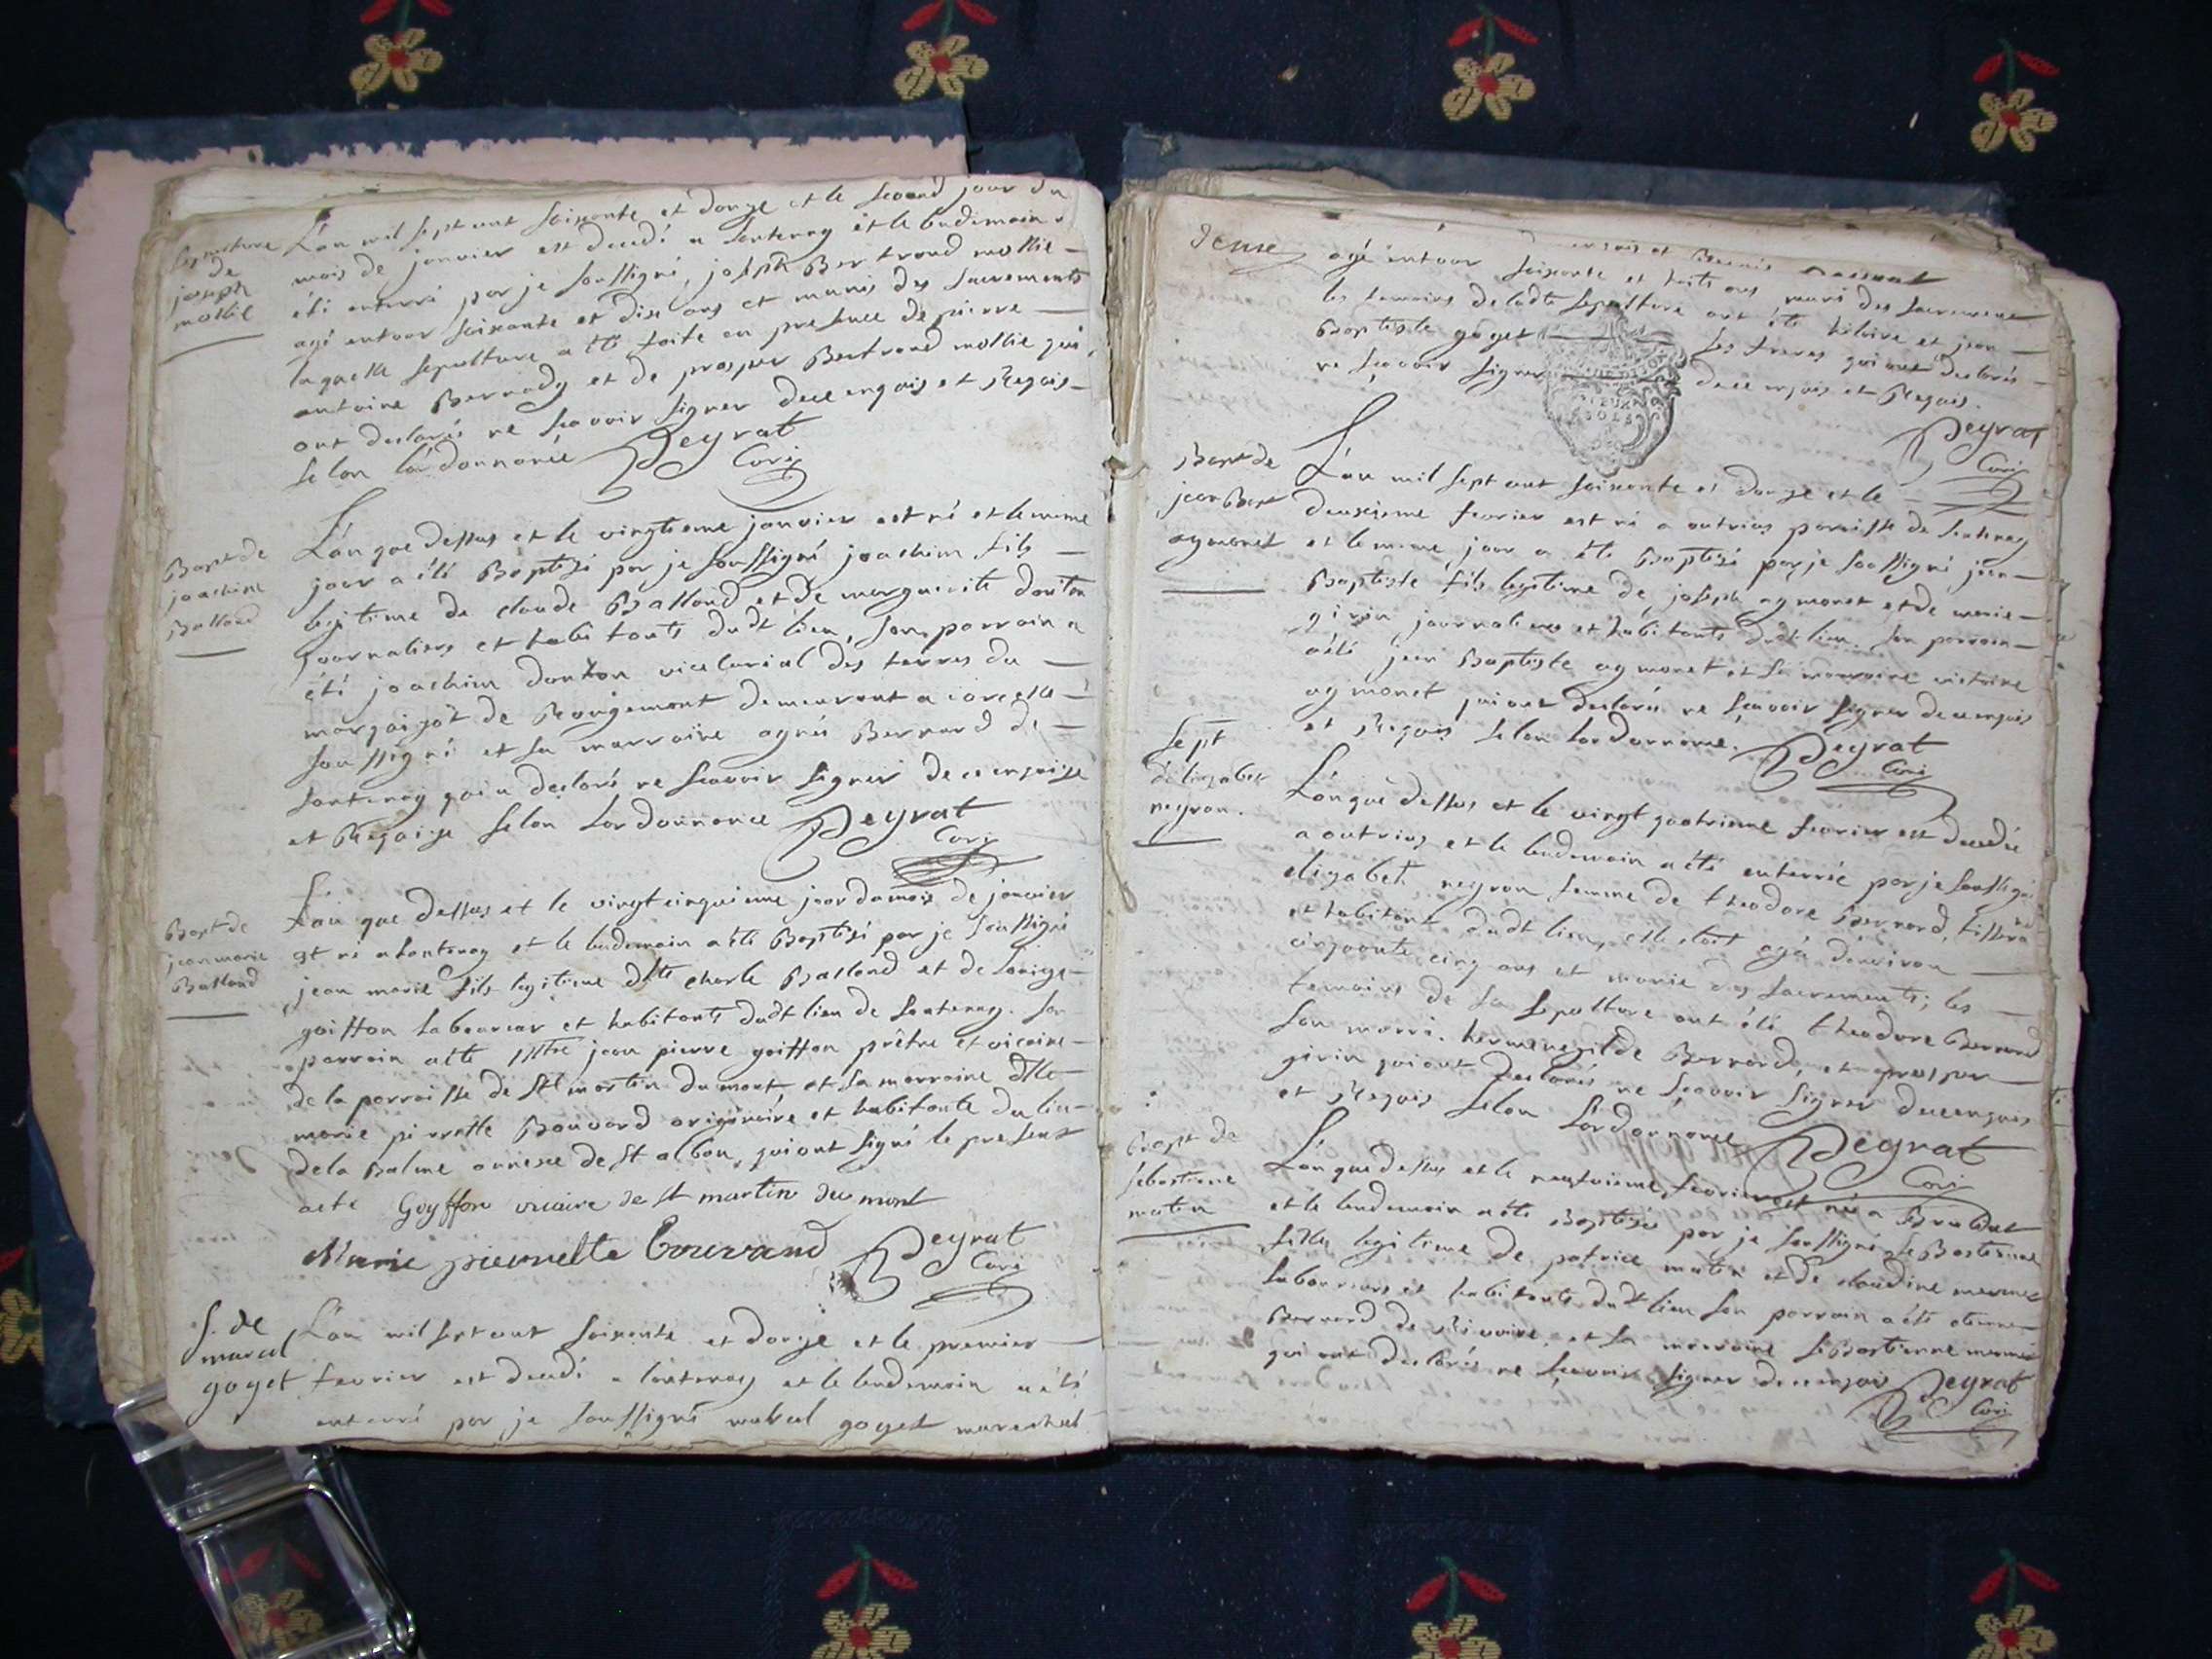 Sepulture
de
joseph
mollie
L'an mil sept cent soixante et douze et le second jour du
mois de janvier est decedé a Lantenay et le lendemain a
été enterré par je soussigné, joseph Bertrand mollie
agé entour soixante et dix ans et munis des sacrements
laquelle sepulture a été faite en presence de pierre
antoine Bernady et de prosper Bertrand mollie qui
ont declarés ne sçavoir signer de ce enquis et Requis
selon lordonnance Peyrat
Curé
Bapt de
joachim
Balland
L'an que dessus et le vingtieme janvier est né et le meme
jour a été Baptisé par je soussigné joachim fils
legitime de claude Balland et de marguerite donton
journaliers et habitants dudt lieu, son parrain a
été joachim donton vice curial des terres du
de Rougemont demeurant a corcelle
soussigné et sa marraine agnés Bernard de
Lantenay qui a declaré ne sçavoir signer de ce enquise
et Requise selon Lordonnance Peyrat
Curé
Bapt de
jean marie
Balland
L'an que dessus et le vingt cinquieme jour du mois de janvier
est né a Lantenay et le lendemain a été Baptisé par je soussigné
jean marie fils legitime de charle Balland et de Louise
goiffon laboureur et habitants dudt lieu de Lantenay. son
parrain a été Mtre jean pierre goiffon prêtre et vicaire
de la parroisse de St martin du mont, et sa marraine dlle
marie pierrette Bouvard originaire et habitante du lieu
de la Balme annexe de St alban, qui ont signé le present
acte Goyffon vicaire de st martin du mont
Marie pierrette bouvard Peyrat
Curé
S. de
marcel
goyet
L'an mil sept cent soixante et douze et le premier
fevrier est decedé a lantenay et le lendemain a été
enterré par je soussigné marcel goyet marechal
agé entour soixante et huits ans muni des sacrements
les temoins de ladte sepulture ont été hilaire et jean
Baptiste goyet ses freres qui ont declarés
ne sçavoir signer de ce enquis et Requis.
Peyrat
Curé
Bapt de
jean Bapt
aymonet
L'an mil sept cent soixante et douze et le
deuxieme fevrier est né a outriaz parroisse de Lantenay
et le meme jour a été Baptisé par je soussigné jean
Baptiste fils legitime de joseph aymonet et de marie
girin journaliers et habitants dudt lieu. son parrain
a été jean Baptiste aymonet et sa marraine victoire
aymonet qui ont declarés ne sçavoir signer de ce enquis
et Requis selon lordonnance. Peyrat
Curé
Sept
délizabet
neyron.
L'an que dessus et le vingt quatrieme fevrier est decedée
a outriaz et le lendemain a été enterrée par je soussigné
elizabeth neyron femme de theodore Bernard, tisserand
et habitant dudt lieu, elle etoit agée denviron
cinquante cinq ans et munie des sacrements; les
temoins de sa sepulture ont été theodore Bernard
son marri, hermenegilde Bernard, et prosper
girin qui ont declarés ne sçavoir signer de ce enquis
et Requis selon Lordonnance Peyrat
Curé
Bapt de
sebastiene
matin
L'an que dessus et le fevrier est née a Brudet
et le lendemain a été Baptisée par je soussigné seBastienne
fille legitime de patrice matin et de claudine mermet
laboureurs et habitants dudt lieu son parrain a été etienne
Bernard de et sa marraine seBastienne mermet
qui ont declarés ne sçavoir signer de ce enquis Peyrat
Curé